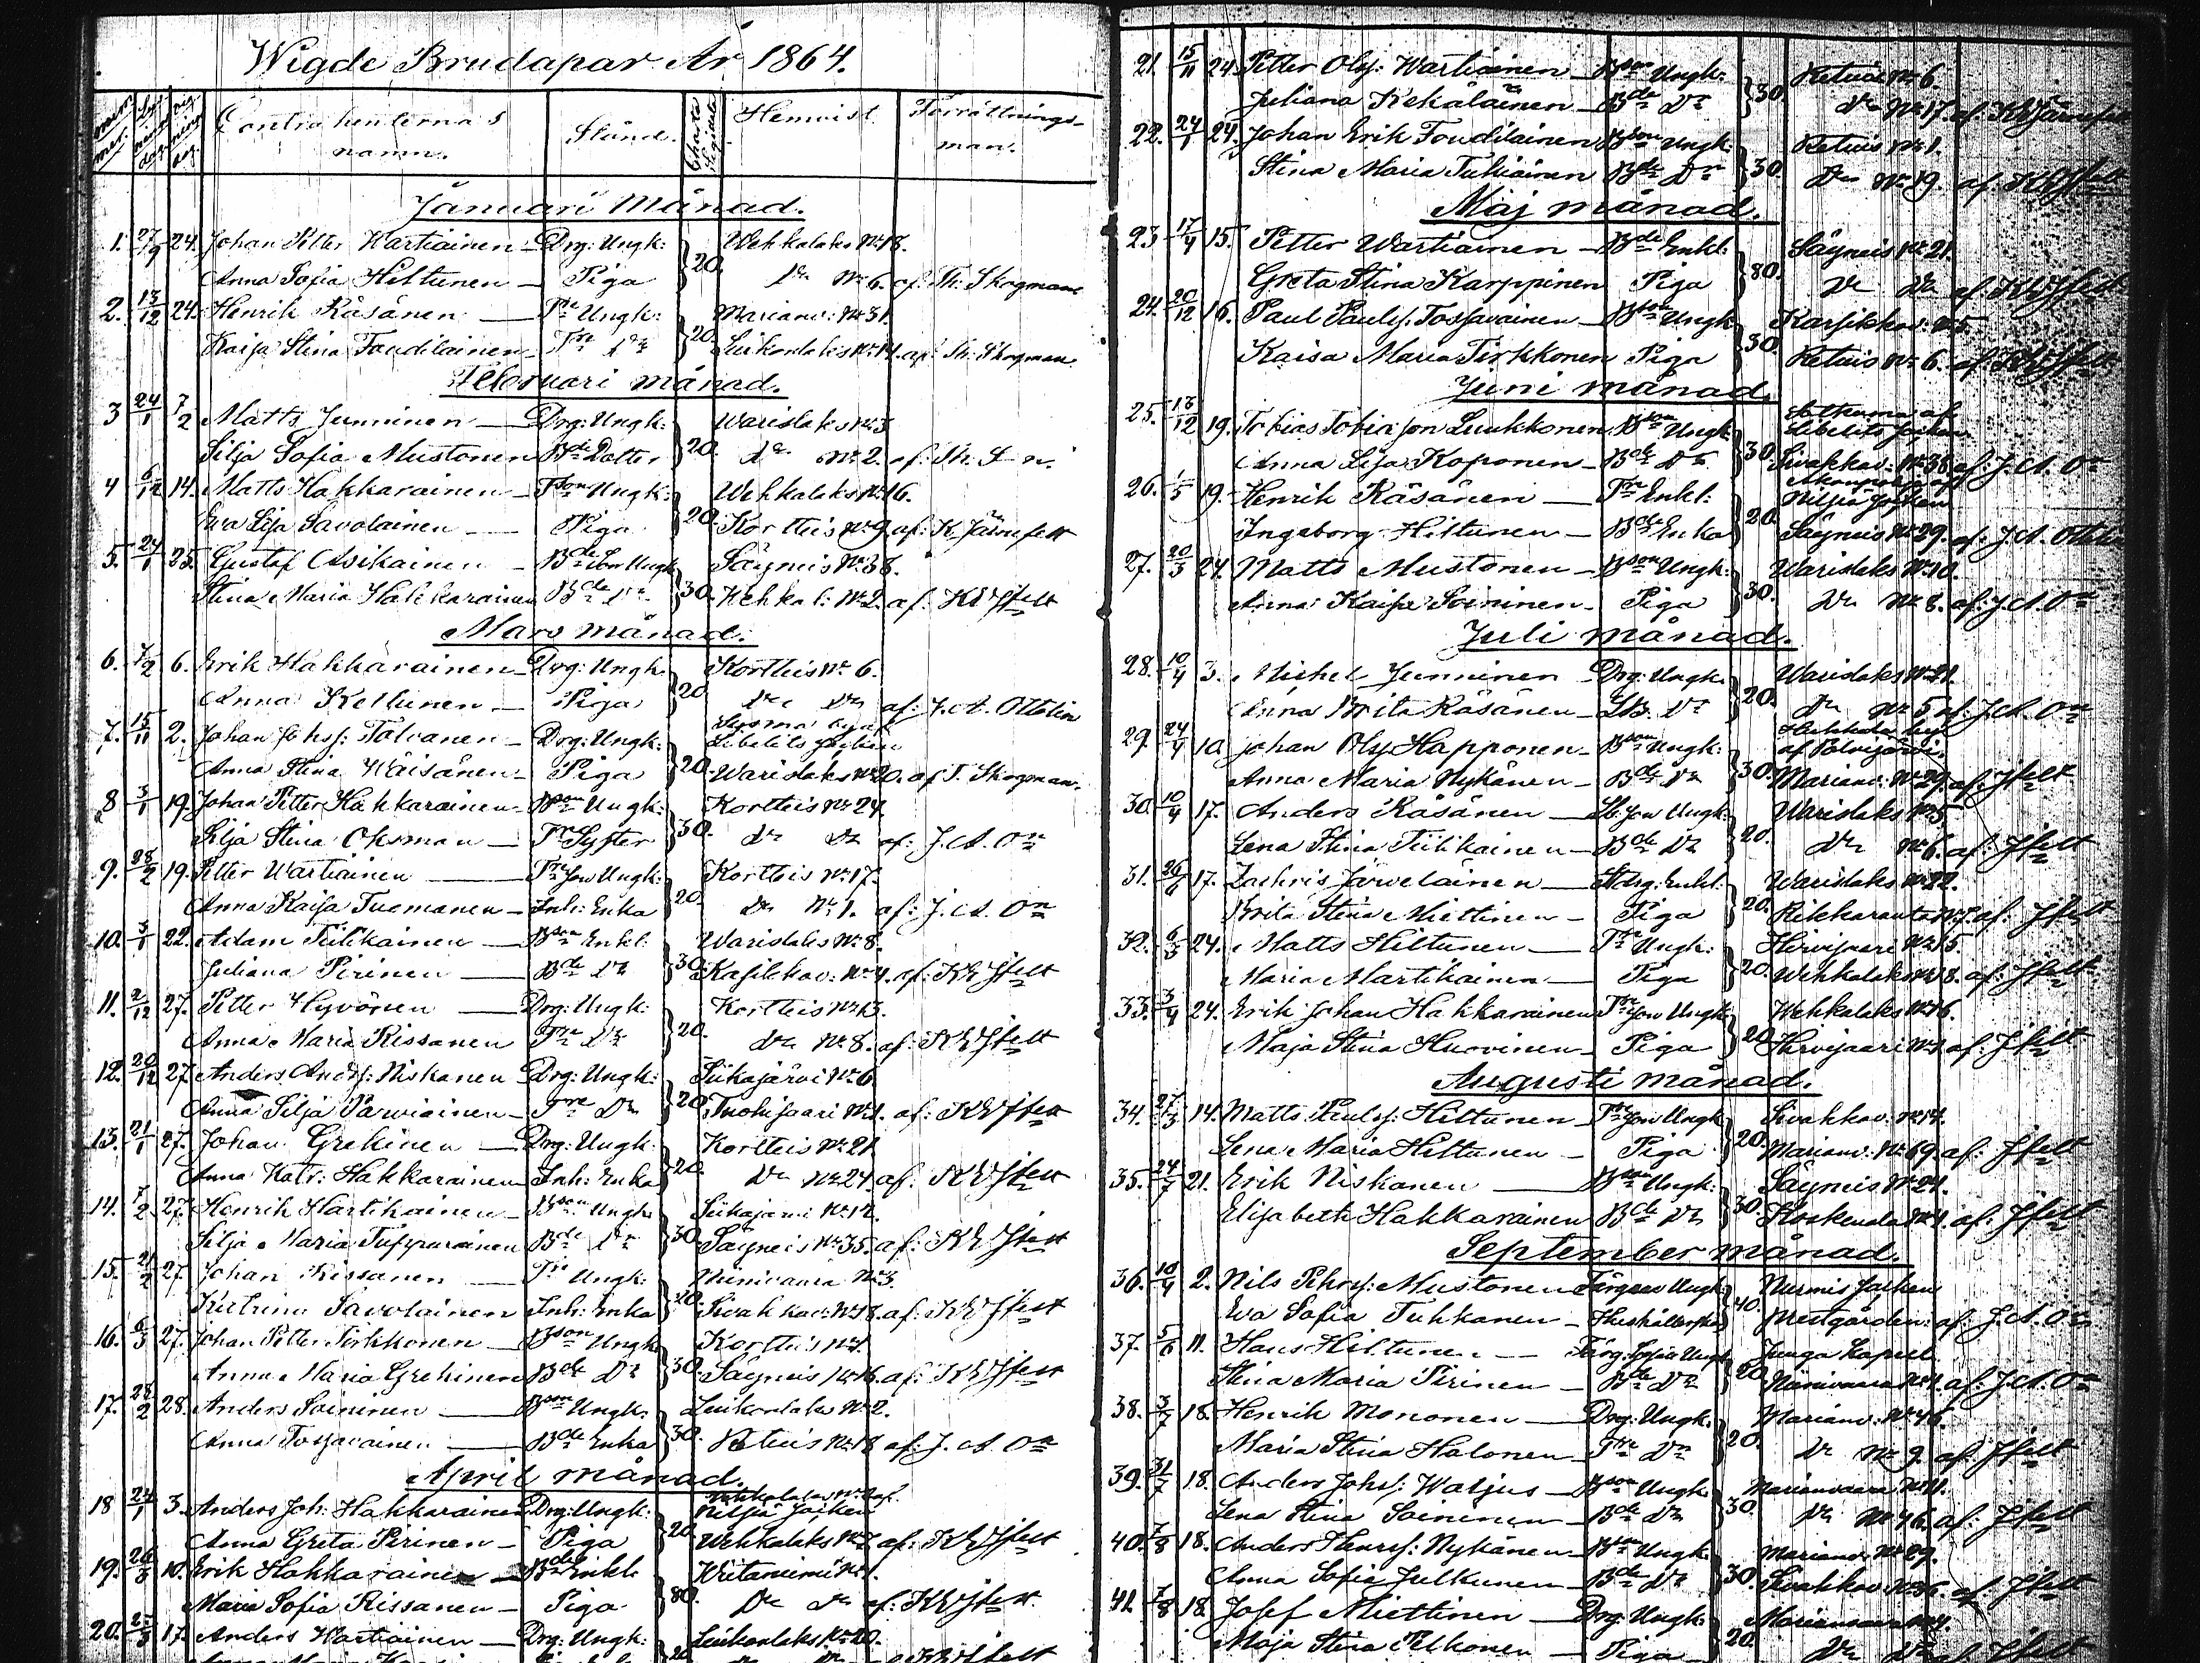 Wigde Brudapar År 1864.
Contrahenternas namn. Stånd. Charta Sigillata Hemvist Förrättningsman.
Januari Månad.
1. 27/9 24. Johan Petter Wartiainen Drg: Ungk: Wehkalaks No 18.
Anna Sofia Hiltunen Piga 20. Do No 6. af: Th: Skogman
2. 13/12 24. Henrik Räsänen Ungk: Marianv: No 31.
Kaisa Stina Toudilainen Do 20. Luikonlaks No 14. af: Th: Skogman
Februari månad.
3 24/1 7/2 Matts Junninen Drg: Ungk: Warislaks No 3
Silja Sofia Mustonen Bde Dotter 20. Do No 2. af: Th. S-n.
4 6/12 14. Matts Hakkarainen Tson Ungk: Wehkalaks No 16.
Ewa Lisa Savolainen Piga 20. Kortteis No 9. af: K. Järnefelt
5. 24/1 25. Gustaf Asikainen Säyneis No 38.
Stina Maria Hakkarainen Bde Dr 30. Wehkal: No 2. af: KEJfelt
Mars månad.
6. 7/2 6. Erik Hakkarainen Drg: Ungk: Kortteis No 6.
Anna Kettunen Piga 20 Do Do af: J. A. Ottelin
7. 15/11 2. Johan Johsf: Tolvanen Drg: Ungk: Libelits Socken
Anna Stina Wäisänen Piga 20. Warislaks No 20. af T. Skogman.
8 3/1 19. Johan Petter Hakkarainen Bson Ungk: Kortteis No 24.
Silja Stina Oksman Tr Syster 30. Do Do af: J. A. On
9. 28/2 19. Petter Wartiainen Tre Son Ungk: Kortteis No 17.
Anna Kaisa Tuomanen Inh: Enka 20. Do No 1. af: J. A. On
10. 3/1 22. Adam Tiilikainen Bson Enkl: Warislaks No 8.
Juliana Pirinen Bde Dr 30. Kasikkav: No 4. af: KEJfelt
11. 2/12 27. Petter Hyvönen Drg: Ungk: Kortteis No 13.
Anna Maria Rissanen Tre Dr 20. Do No 8. af: KEJfelt
12. 20/12 27. Anders Andsf: Niskanen Drg: Ungk: Siikajärvi No 6
Anna Silja Parviainen Tre Dr 20. Tuohisaari No 1. af: KEJfelt
13. 21/1 27. Johan Grekinen Drg: Ungk: Kortteis No 21
Anna Katr: Hakkarainen Inh: Enka 20. Do No 24. af: KEJfelt
14. 7/2 27. Henrik Hartikainen Bson Ungk: Siikajärvi No 12.
Silja Maria Tuppurainen Bde Dr 30. Säyneis No 35. af: KEJfelt
15. 21/2 27. Johan Rissanen Ungk: Niinivaara No 3.
Katrina Savolainen Inh: Enka 20. Sivakkav: No 18. af: KEJfelt
16. 6/3 27. Johan Petter Tirkkonen Bson Ungk: Kortteis No 4.
Anna Maria Grekinen Bde Dr 30. Säyneis No 16. af: KEJfelt
17. 28/2 28. Anders Soininen Bson Ungk: Luikonlaks No 2.
Anna Tossavainen Bde Enka 30. Petuis No 18 af: J. A. On
April månad.
18 24/1 3. Anders Joh: Hakkarainen Drg: Ungk: Nilsiä Socken
Anna Greta Pirinen Piga 20. Wehkalaks No 7. af: KEJfelt
19. 26/3 10. Erik Hakkarainen Bde Enkl: Kritaniemi No 1.
Maria Sofia Rissanen Piga 80. Do Do af: KEJfelt
20. 17. Anders Wartiainen Drg: Ungk: Luikonlaks No 20.
21. 15/11 24. Petter Olsf: Wartiainen Bson Ungk: Retuis No 6.
Juliana Kekäläinen Bde Dr 30. Do No 17. af. KEJärnefelt
22. 24/1 24. Johan Erik Toudilainen Bson Ungk: Retuis No 1.
Stina Maria Tukiainen Bde Dr 30. Do No 19. af: KEJfelt
Maj månad.
23. 17/4 15. Petter Wartiainen Bde Enkl: Säyneis No 21.
Greta Stina Karppinen Piga 80. Do Do af: KEJfelt
24. 20/12 16. Paul Paulsf. Tossavainen Bson Ungk: Karsikkav: No 5.
Kaisa Maria Tirkkonen Piga 30. Retuis No 6. af: KEJfelt
Juni månad.
25. 13/12 19. Tobias Tobiasson Luukkonen Bson Ungk: Libelits Socken
Anna Lisa Koponen Bde Dr 30. Sivakkav: No 38 af: J. A. On
26. 1/5 19. Henrik Räsänen Tre Enkl: Nilsiä Socken
Ingeborg Hiltunen Bde Enka 20. Säyneis No 29. af: J. A. Ottelin
27. 20/3 24. Matts Mustonen Bson Ungk: Warislaks No 10.
Anna Kaisa Soininen Piga 30. Do No 8. af: J. A. On
Juli månad.
28. 10/4 3. Michel Junninen Drg: Ungk: Warislaks No 21.
Anna Brita Räsänen Dr 20. Do No 5 af: J. A. On
29. 24/4 10. Johan Olsf Happonen Bson Ungk: af Polvijärvi.
Anna Maria Nykänen Bde Dr 30. Marianv: No 29. af: Jfelt
30. 10/4 17. Anders Räsänen Son Ungk: Warislaks No 5.
Lena Stina Tiilikainen Bde Dr 20. Do No 6. af: Jfelt
31. 17. Zachris Järveläinen Enkl: Warislaks No 22.
Brita Stina Miettinen Piga 20. Rikkaranta No 7. af: Jfelt
32. 6/3 24. Matts Hiltunen Tre Ungk: Hirvisaari No 15.
Maria Martikainen Piga 20. Wehkalaks No 8. af: Jfelt
33. 3/4 24. Erik Johan Hakkarainen Tre Son Ungk: Wehkalaks No 16.
Maja Stina Huovinen Piga 20. Hirvisaari No 1 af: Jfelt
Augusti månad.
34. 27/3 14. Matts Paulsf: Hiltunen Tre Son Ungk: Sivakkav: No 14.
Lena Maria Hiltunen Piga 20. Marianv: No 69. af: Jfelt
35. 24/7 21. Erik Niskanen Bson Ungk: Säyneis No 24.
Elisabeth Hakkarainen Bde Dr 30. Koskenda No 4. af: Jfelt
September månad.
36. 10/4 2. Nils Mustonen Ungk: Nurmis Socken
Ewa Sofia Tuhkanen 40. Prestgården: af: J. A. On
37. 5/6 11. Hans Hiltunen Juuga Kapell
Stina Maria Pirinen Bde Dr 20. Niinivaara No 4. af: J. A. On
38. 3/7 18. Henrik Mononen Drg: Ungk: Marianv: No 46.
Maria Stina Halonen Tre Dr 20. Do No 9. af: Jfelt
39. 31/7 18. Anders Johsf: Watjus Bson Ungk: Marianvaara No 11.
Lena Stina Soininen Bde Dr 30. Do No 46. af: Jfelt
40. 7/8 18. Anders Henrsf: Nykänen Bson Ungk: Marianv: No 29.
Anna Sofia Julkunen Bde Dr 30. Sivakkav: No 36. af: Jfelt
41. 7/8 18. Josef Miettinen Drg: Ungk: Marianvaara No 4.
Maja Stina Pelkonen Piga 20. Do Do af: Jfelt